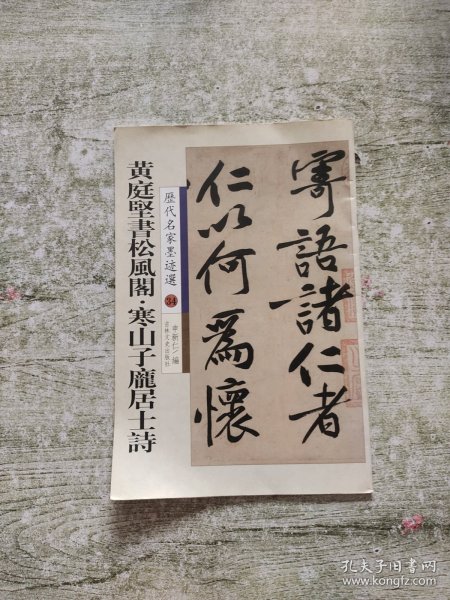 寄語諸仁者
仁以何為懷
歷代名家墨迹選
34
李新仁/編
吉林文史出版社
黃庭堅書松風閣·寒山子龐居士詩
孔夫子旧书网
www.kongfz.com